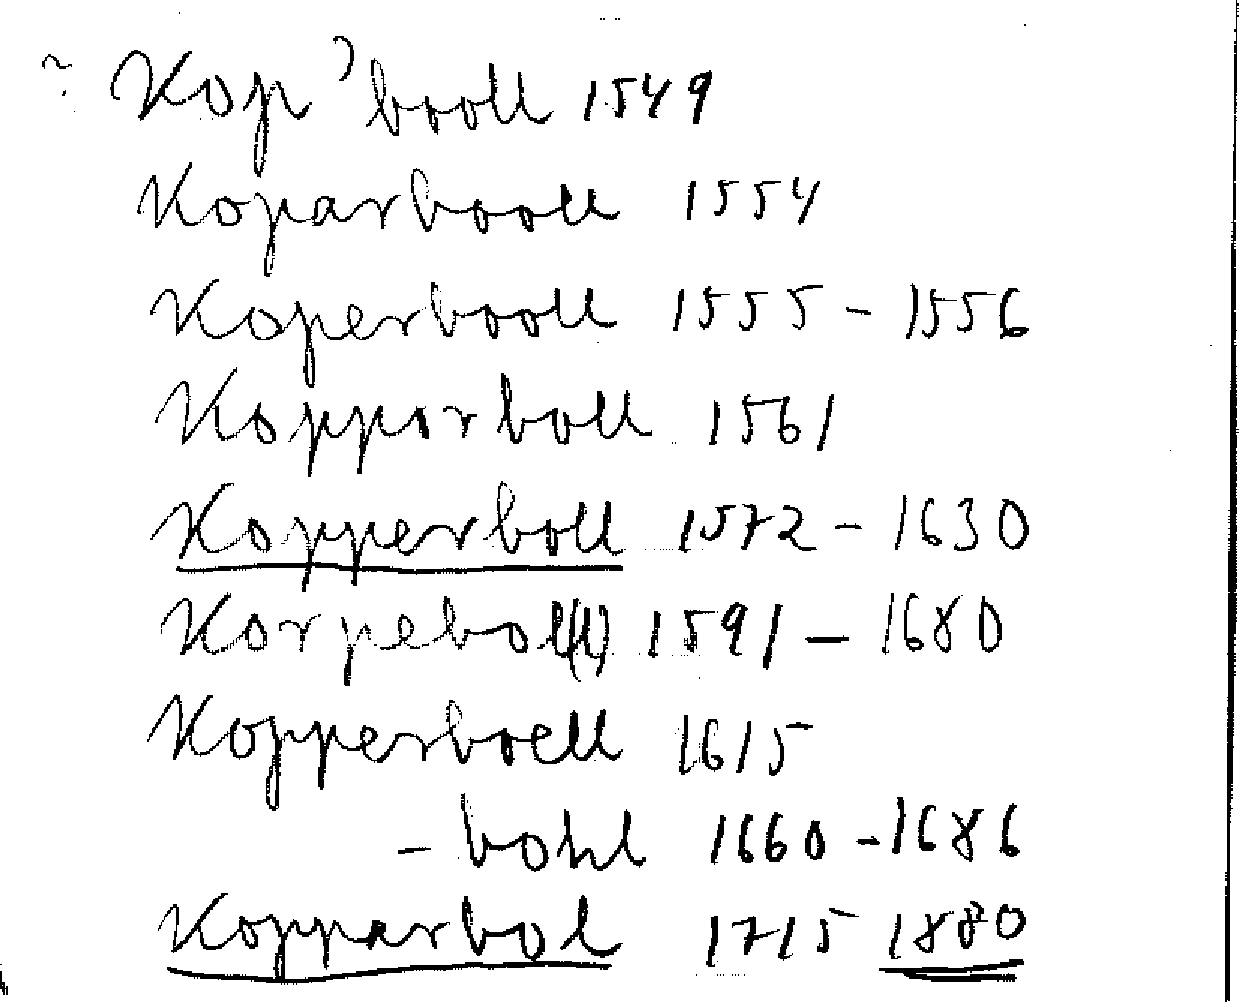 Kop⁾booll 1549
Koparbooll 1554
Koperbooll 1555 - 1556
Kopparboll 1561
Kopperboll 1572 - 1630
Korpebol(l) 1591 - 1680
Kopperboell 1615
- bohl 1660 - 1686
Kopparbol 1715 1880